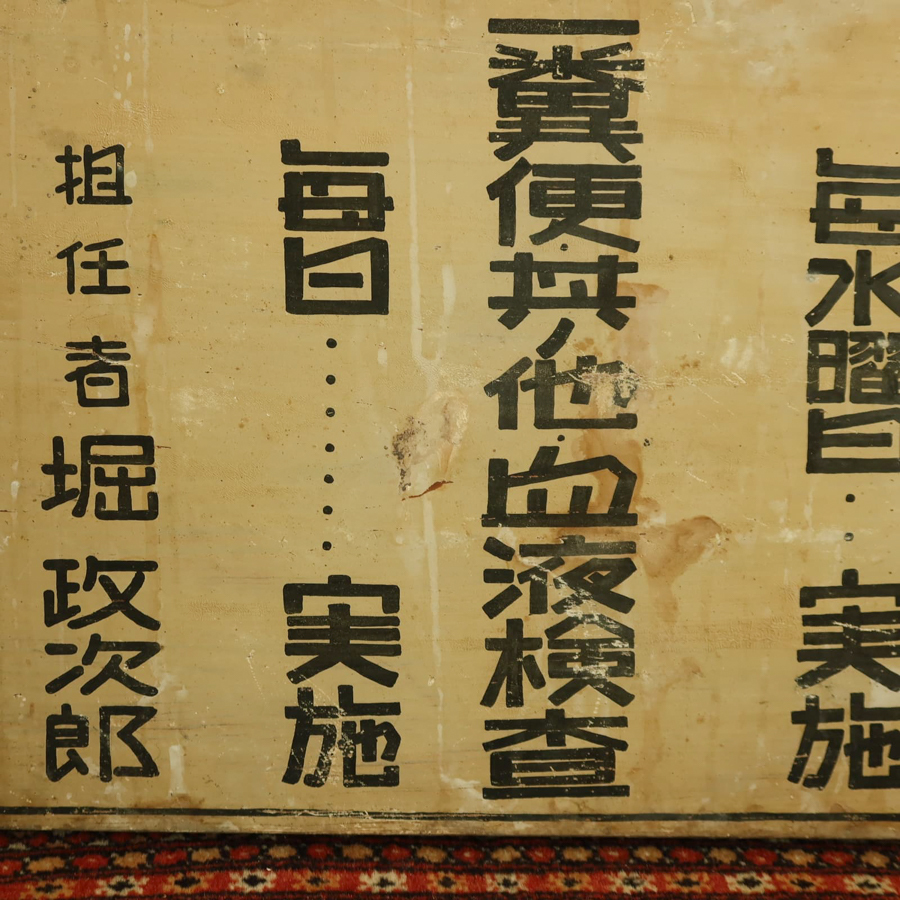 毎水曜日・・実施
一糞便其ノ他血液検査
毎日・・・・・・・実施
担任者 堀政次郎